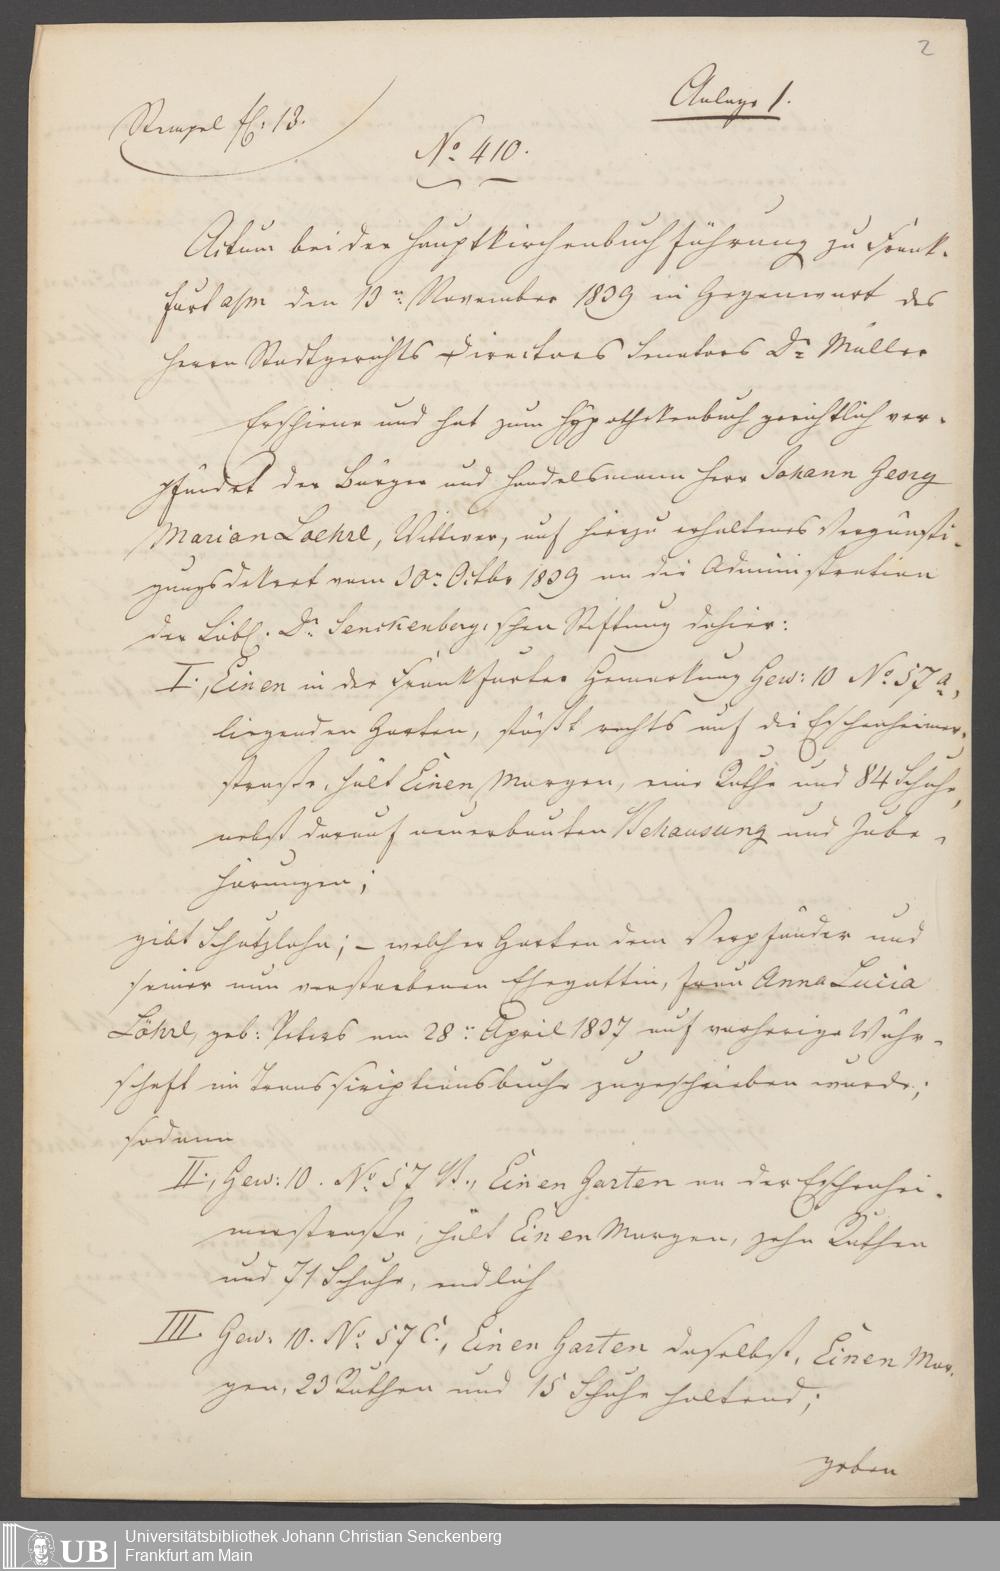 2
Anlage 1.
Stempel fl: 13.
No 410.
Actum bei der Hauptkirchenbuchführung zu Frank-
furt a/m den 13n November 1839 in Gegenwart des
Herrn Stadtgerichts Directors Senators Dr Müller
Erschiene und hat zum Hypothekenbuch gerichtlich ver-
pfändet der Bürger und Handelsmann Herr Johann Georg
Marian Loehrl, Wittwer, auf hierzu erhaltenes Vergünsti-
gungsdekret vom 30n Octbr 1839 an die Administration
der Löbl. Dr Senckenberg'schen Stiftung dahier:
I., Einen in der Frankfurter Gemarkung Gew: 10 No 57a,
liegenden Garten, stößt rechts auf die Eschenheimer-
straße, hält Einen Morgen, eine Ruthe und 84 Schuhe,
nebst darauf neuerbauten Behausung und Zube-
hörungen;
gibt Schutzlohn; – welcher Garten dem Verpfänder und
seiner nun verstorbenen Ehegattin, Frau Anna Lucia
Löhrl, geb: Peters am 28n April 1837 auf vorherige Währ-
schaft im Transscriptionsbuche zugeschrieben wurde;
sodann
II., Gew: 10. No 57 B., Einen Garten an der Eschenhei-
merstraße, hält Einen Morgen, zehn Ruthen
und 71 Schuhe, endlich
III. Gew: 10. No 57 C., Einen Garten daselbst, Einen Mor-
gen, 23 Ruthen und 15 Schuhe haltend;
geben
UB
Universitätsbibliothek Johann Christian Senckenberg
Frankfurt am Main